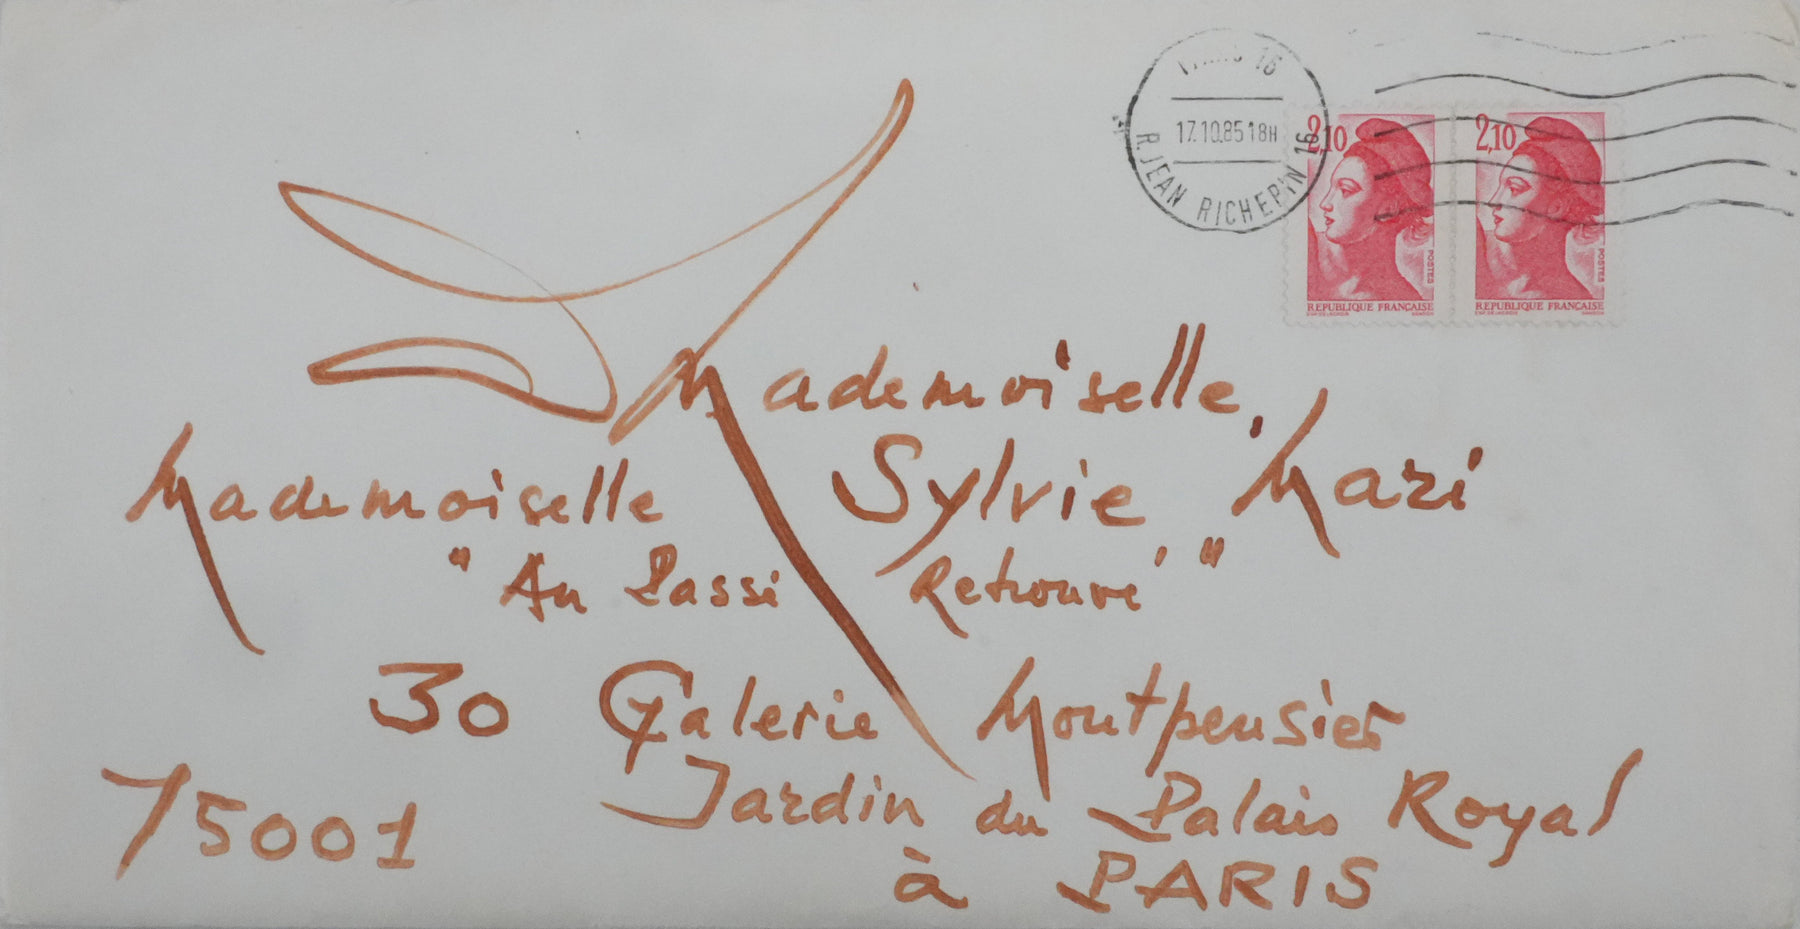 PARIS 16
17.10.85 18H
R. JEAN RICHEPIN 16
2,10
POSTES
REPUBLIQUE FRANÇAISE
2,10
POSTES
REPUBLIQUE FRANÇAISE
Mademoiselle,
Mademoiselle Sylvie Mazi
"Au Passé Retrouvé"
30 Galerie Montpensier
75001 Jardin du Palais Royal
à PARIS